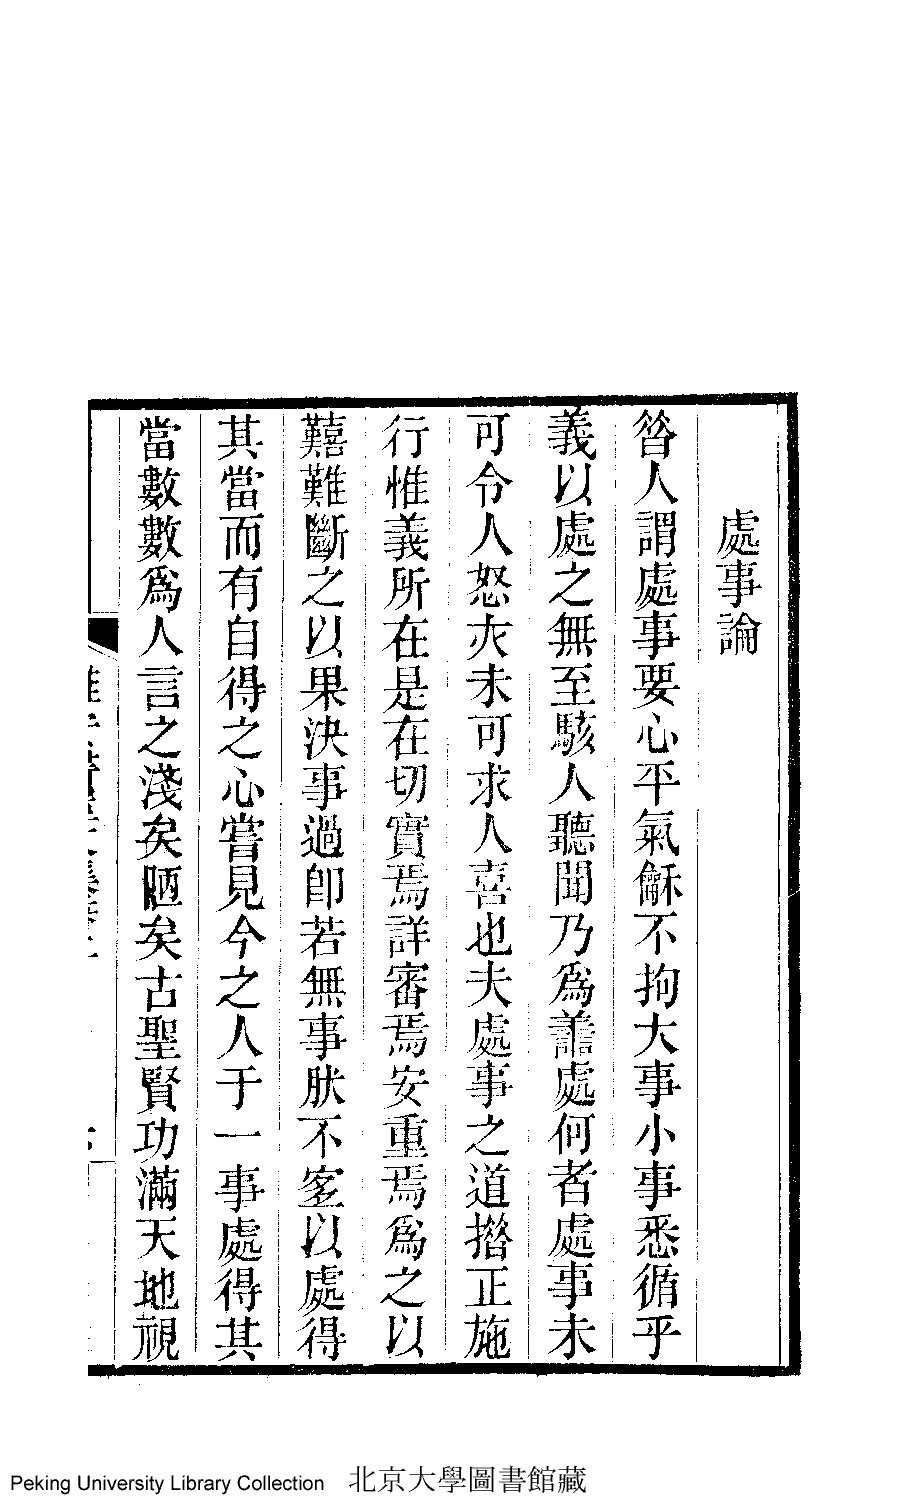 處事論
昝人謂處事要心平氣龢不拘大事小事悉循乎
義以處之無至駭人聽聞乃爲譱處何者處事未
可令人怒夾未可求人喜也夫處事之道揝正施
行惟義所在是在切實焉詳審焉安重焉爲之以
囏難斷之以果決事過卽若無事肰不窓以處得
其當而有自得之心嘗見今之人于一事處得其
當數數爲人言之淺矣陋矣古聖賢功滿天地視
Peking University Library Collection 北京大學圖書館藏